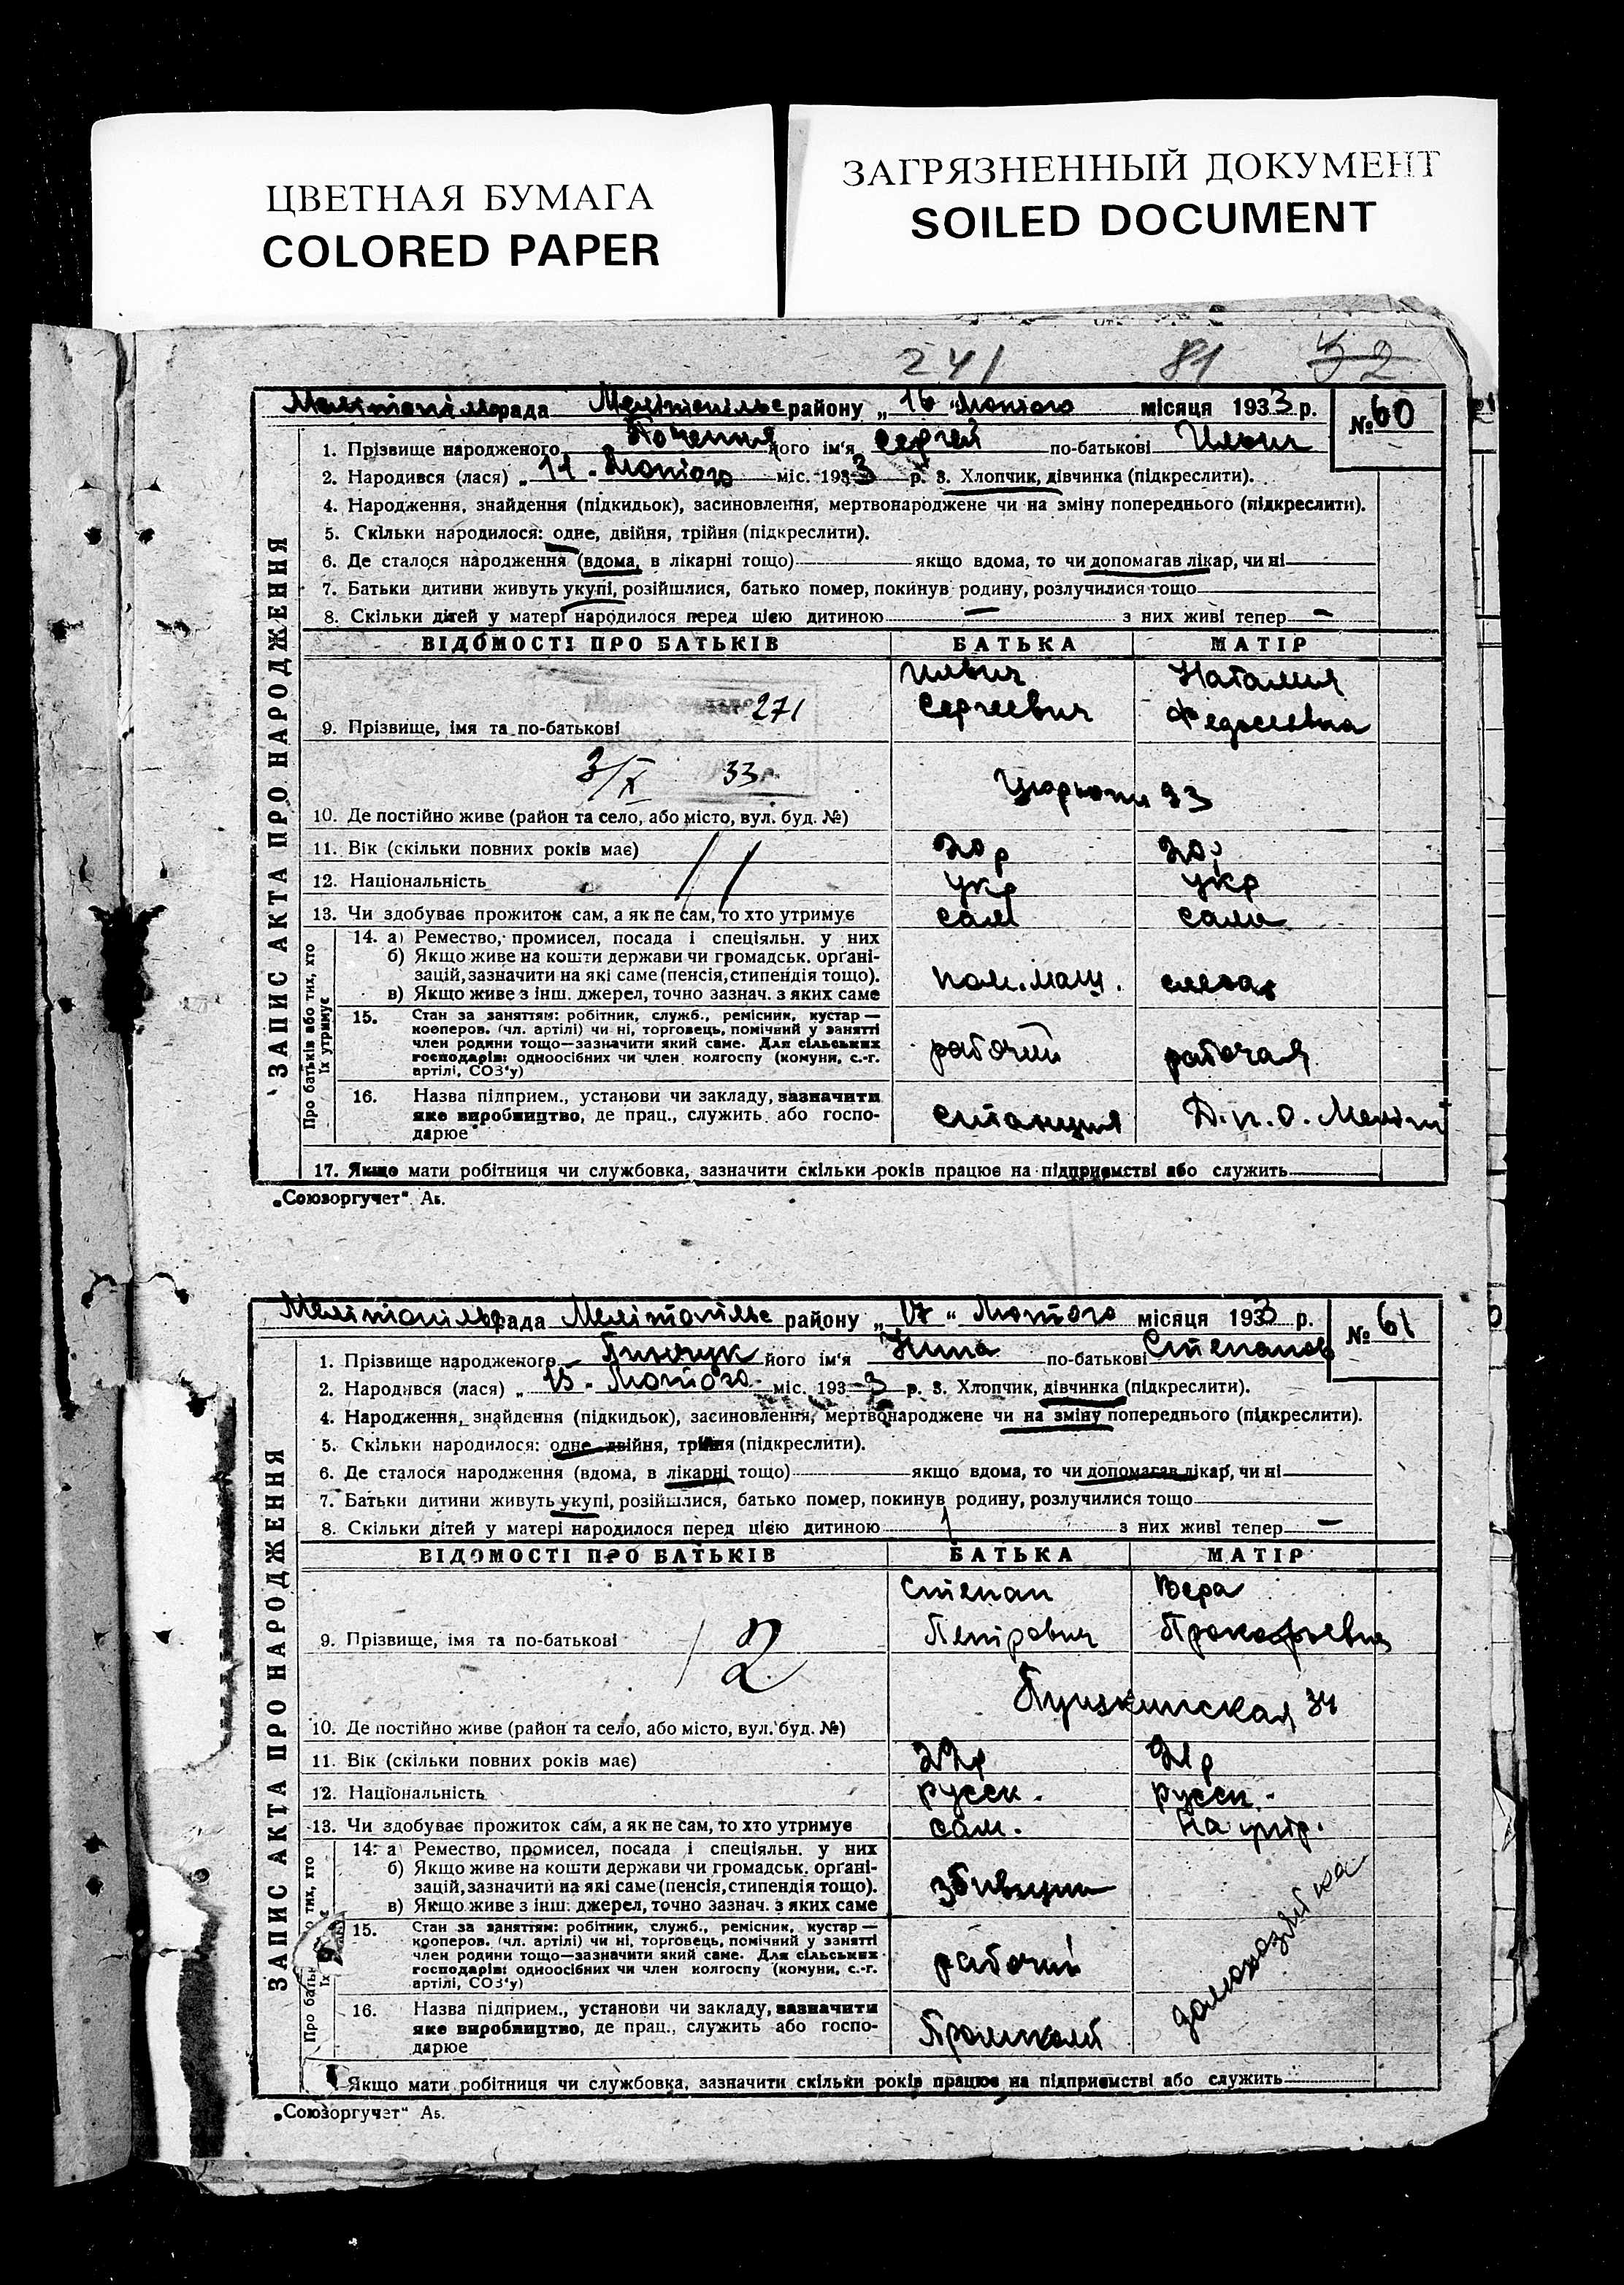 ЦВЕТНАЯ БУМАГА
COLORED PAPER
ЗАГРЯЗНЕННЫЙ ДОКУМЕНТ
SOILED DOCUMENT
241 81 52
рада Мелітопільс району „16 “ Лютого місяця 1933 р. № 60
ЗАПИС АКТА ПРО НАРОДЖЕННЯ
1. Прізвище народженого його ім'я Сергей по-батькові Ильич
2. Народився (лася) „ 11 - Лютого міс. 1933 р. 3. Хлопчик, дівчинка (підкреслити).
4. Народження, знайдення (підкидьок), засиновлення, мертвонароджене чи на зміну попереднього (підкреслити).
5. Скільки народилося: одне, двійня, трійня (підкреслити).
6. Де сталося народження (вдома, в лікарні тощо) якщо вдома, то чи допомагав лікар, чи ні
7. Батьки дитини живуть укупі, розійшлися, батько помер, покинув родину, розлучилися тощо
8. Скільки дітей у матері народилося перед цією дитиною — з них живі тепер —
ВІДОМОСТІ ПРО БАТЬКІВ БАТЬКА МАТІР
Ильич Наталия
271 Сергеевич Федосеевна
9. Прізвище, імя та по-батькові
3/X 33 г.
33
10. Де постійно живе (район та село, або місто, вул. буд. №)
11. Вік (скільки повних років має) 20 р 20 р
12. Національність укр укр
13. Чи здобуває прожиток сам, а як не сам, то хто утримує сам сама
Про батьків або тих, хто їх утримує
14. а) Ремество, промисел, посада і спеціяльн. у них
б) Якщо живе на кошти держави чи громадськ. органі-
зацій, зазначити на які саме (пенсія, стипендія тощо). пом. маш.
в) Якщо живе з інш. джерел, точно зазнач. з яких саме
15. Стан за заняттям: робітник, служб., ремісник, кустар —
кооперов. (чл. артілі) чи ні, торговець, помічний у занятті
член родини тощо—зазначити який саме. Для сільських рабочий рабочая
господарів: одноосібних чи член колгоспу (комуни, с.-г.
артілі, СОЗ'у)
16. Назва підприєм., установи чи закладу, зазначити
яке виробництво, де прац., служить або госпо- станция Д.п.о. Меліт
дарює
17. Якщо мати робітниця чи службовка, зазначити скільки років працює на підприємстві або служить
„Союзоргучет“ Аз.
Мелітопільс рада Мелітопільс району „17 “ Лютого місяця 1933 р. № 61
ЗАПИС АКТА ПРО НАРОДЖЕННЯ
1. Прізвище народженого його ім'я Нина по-батькові Степанов
2. Народився (лася) „ 13 - Лютого міс. 1933 р. 3. Хлопчик, дівчинка (підкреслити).
4. Народження, знайдення (підкидьок), засиновлення, мертвонароджене чи на зміну попереднього (підкреслити).
5. Скільки народилося: одне двійня, трійня (підкреслити).
6. Де сталося народження (вдома, в лікарні тощо) якщо вдома, то чи допомагав лікар, чи ні
7. Батьки дитини живуть укупі, розійшлися, батько помер, покинув родину, розлучилися тощо
8. Скільки дітей у матері народилося перед цією дитиною 1 з них живі тепер —
ВІДОМОСТІ ПРО БАТЬКІВ БАТЬКА МАТІР
Степан Вера
9. Прізвище, імя та по-батькові 2 Петрович Прокофьевна
Пушкинская 34
10. Де постійно живе (район та село, або місто, вул. буд. №)
11. Вік (скільки повних років має) 22 р 21 р
12. Національність русск. русск.
13. Чи здобуває прожиток сам, а як не сам, то хто утримує сам. на утр.
14. а) Ремество, промисел, посада і спеціяльн. у них
б) Якщо живе на кошти держави чи громадськ. органі-
зацій, зазначити на які саме (пенсія, стипендія тощо). збивщик
в) Якщо живе з інш. джерел, точно зазнач. з яких саме
домохозяйка
15. Стан за заняттям: робітник, служб., ремісник, кустар —
кооперов. (чл. артілі) чи ні, торговець, помічний у занятті
член родини тощо—зазначити який саме. Для сільських рабочий
господарів: одноосібних чи член колгоспу (комуни, с.-г.
артілі, СОЗ'у)
16. Назва підприєм., установи чи закладу, зазначити
яке виробництво, де прац., служить або госпо-
дарюе
Якщо мати робітниця чи службовка, зазначити скільки років працює на підприємстві або служить
„Союзоргучет“ Аз.